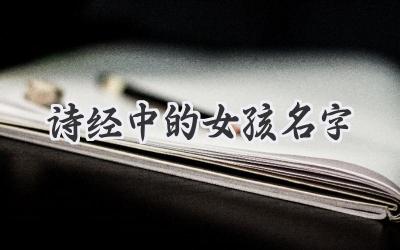 诗经中的女孩名字